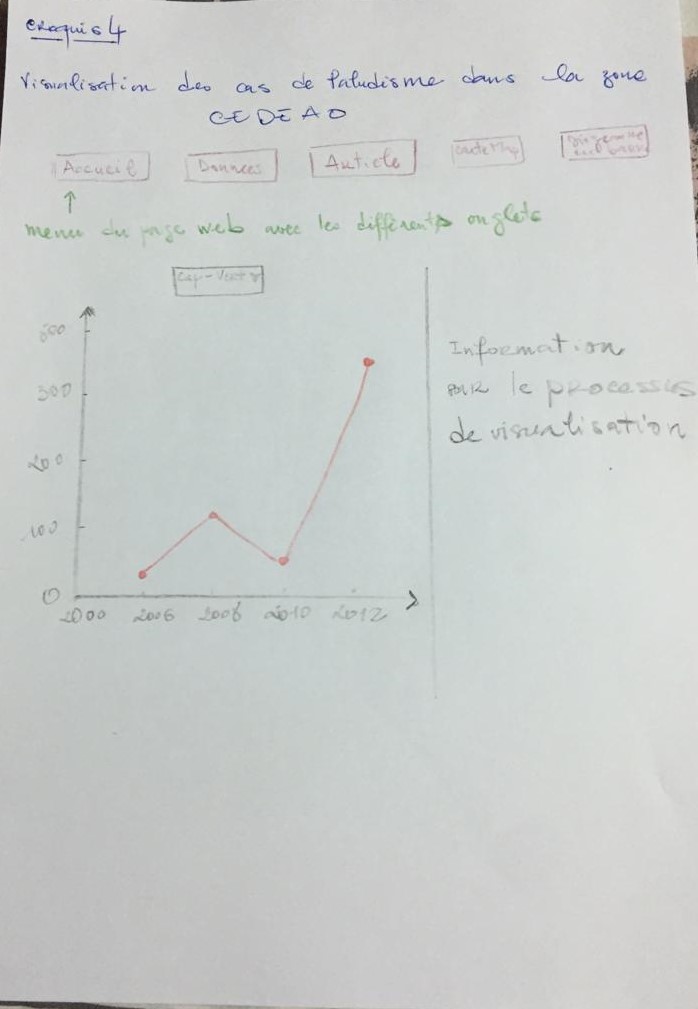 croquis 4
Visualisation des cas de Paludisme dans la zone
CEDEAO
Accueil Données Article
menu du page web avec les différents onglets
Cap-Vert
300
200
100
0
2000 2006 2008 2010 2012
Information
sur le processus
de visualisation